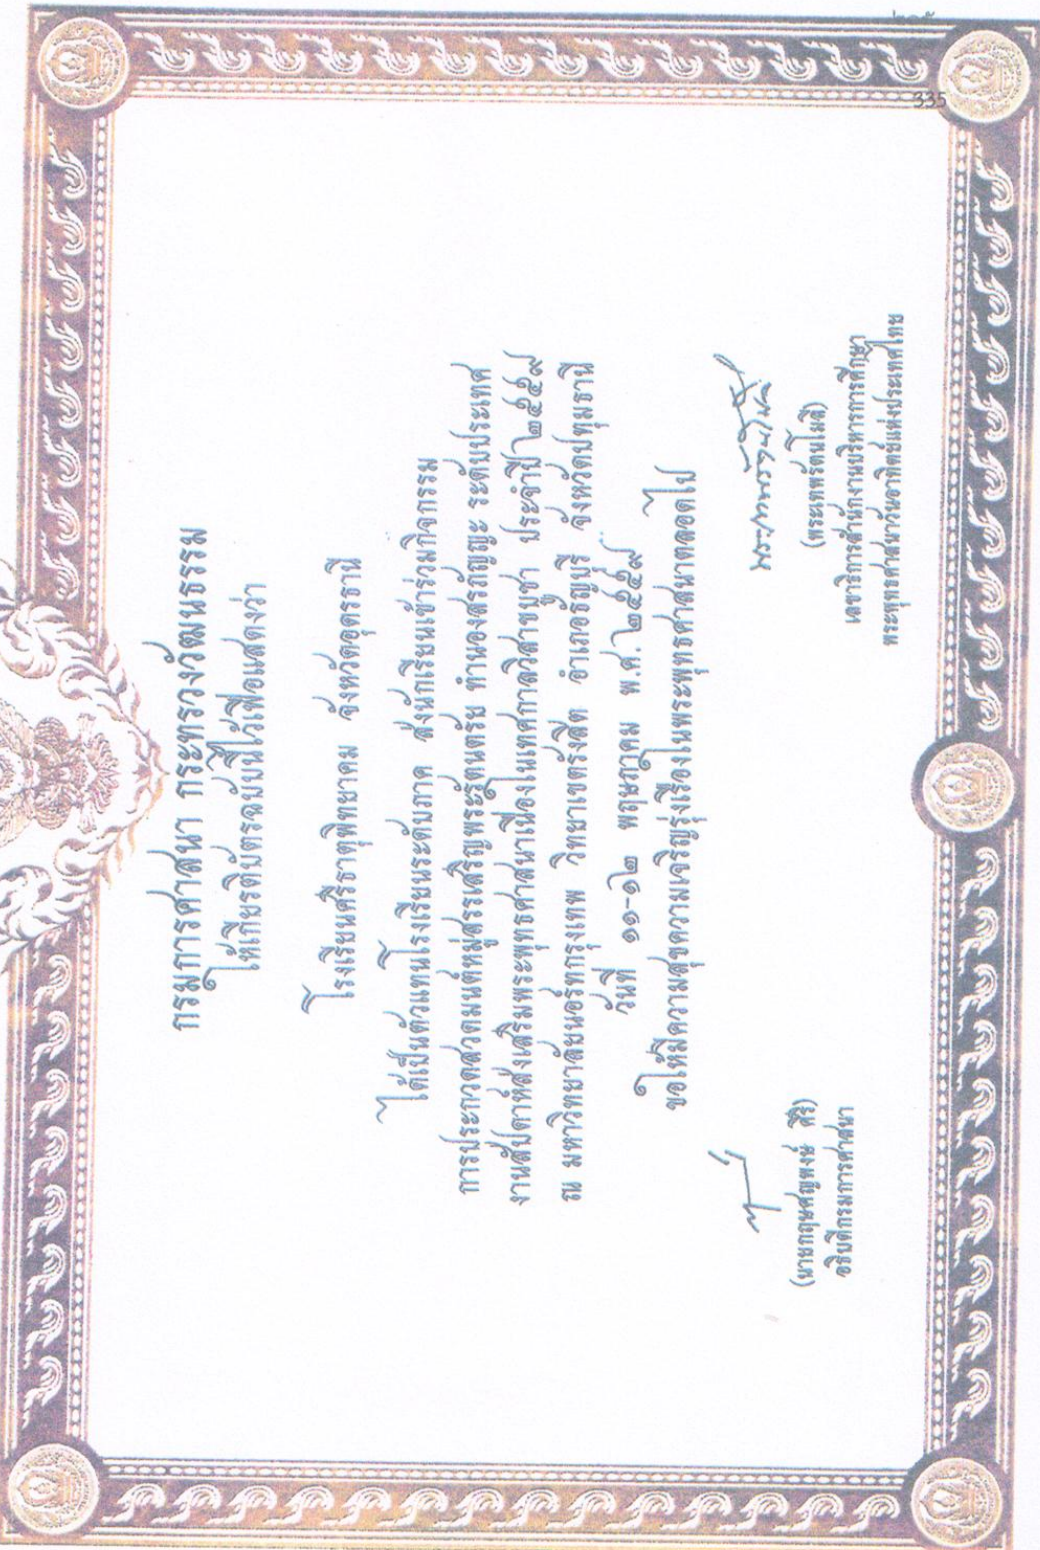 กรมการศาสนา กระทรวงวัฒนธรรม
ให้เกียรติบัตรฉบับนี้ไว้เพื่อแสดงว่า
โรงเรียนศรีธาตุพิทยาคม จังหวัดอุดรธานี
ได้เป็นตัวแทนโรงเรียนระดับภาค ส่งนักเรียนเข้าร่วมกิจกรรม
การประกวดสวดมนต์หมู่สรรเสริญพระรัตนตรัย ทำนองสรภัญญะ ระดับประเทศ
งานสัปดาห์ส่งเสริมพระพุทธศาสนาเนื่องในเทศกาลวิสาขบูชา ประจำปี ๒๕๔๙
ณ มหาวิทยาลัยนอร์ทกรุงเทพ วิทยาเขตรังสิต อำเภอธัญบุรี จังหวัดปทุมธานี
วันที่ ๑๑-๑๒ พฤษภาคม พ.ศ. ๒๕๔๙
ขอให้มีความสุขความเจริญรุ่งเรืองในพระพุทธศาสนาตลอดไป
(นายกฤษศญพงษ์ ศิริ)
อธิบดีกรมการศาสนา
(พระเทพรัตนโมลี)
เลขาธิการสำนักงานบริหารการศึกษา
พระพุทธศาสนาวันอาทิตย์แห่งประเทศไทย
335